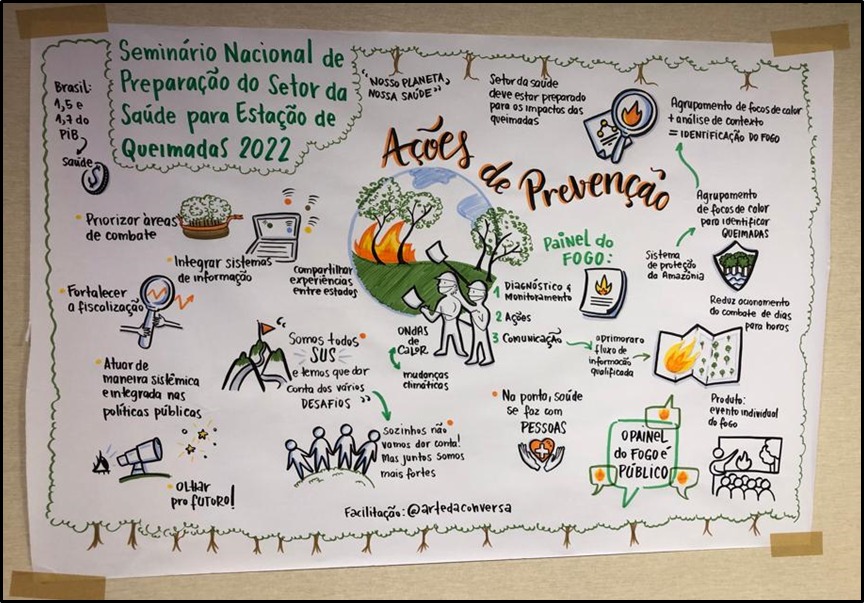 Seminário Nacional de
Preparação do Setor da
Saúde para Estação de
Queimadas 2022
Brasil:
1,5 e
1,7 do
PIB
Saúde
$
"NOSSO PLANETA,
NOSSA SAÚDE"
Setor da saúde
deve estar preparado
para os impactos das
queimadas
Agrupamento de focos de calor
+ análise de contexto
= IDENTIFICAÇÃO DO FOGO
Ações de Prevenção
Priorizar áreas
de combate
Integrar sistemas
de informação
compartilhar
experiências
entre estados
Fortalecer
a fiscalização
Atuar de
maneira sistêmica
e integrada nas
políticas públicas
Olhar
pro futuro!
"Somos todos
SUS
e temos que dar
conta dos vários
DESAFIOS"
Sozinhos não
vamos dar conta!
Mas juntos somos
mais fortes
ONDAS
de CALOR
mudanças
climáticas
Painel do
FOGO:
1 Diagnóstico e
Monitoramento
2 Ações
3 Comunicação
aprimorar o
fluxo de
informação
qualificada
Agrupamento
de focos de calor
para identificar
QUEIMADAS
Sistema
de proteção
da Amazônia
Reduz acionamento
do combate de dias
para horas
Na ponta, saúde
se faz com
PESSOAS
O PAINEL
do FOGO É
PÚBLICO
Produto:
evento individual
do fogo
Facilitação: @artedaconversa